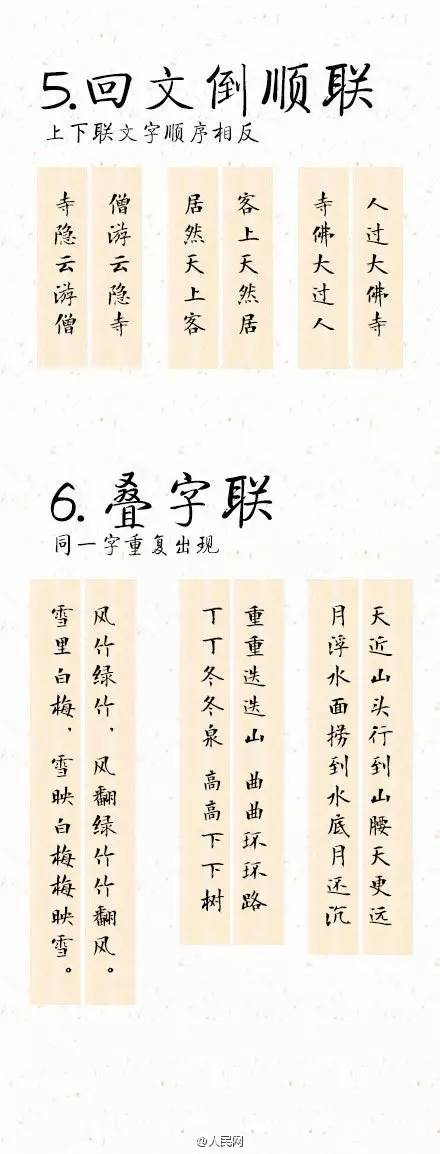 5.回文倒顺联
上下联文字顺序相反
人过大佛寺
寺佛大过人
客上天然居
居然天上客
僧游云隐寺
寺隐云游僧
6.叠字联
同一字重复出现
天近山头行到山腰天更远
月浮水面捞到水底月还沉
重重迭迭山 曲曲环环路
丁丁冬冬泉 高高下下树
风竹绿竹，风翻绿竹竹翻风。
雪里白梅，雪映白梅梅映雪。
@人民网